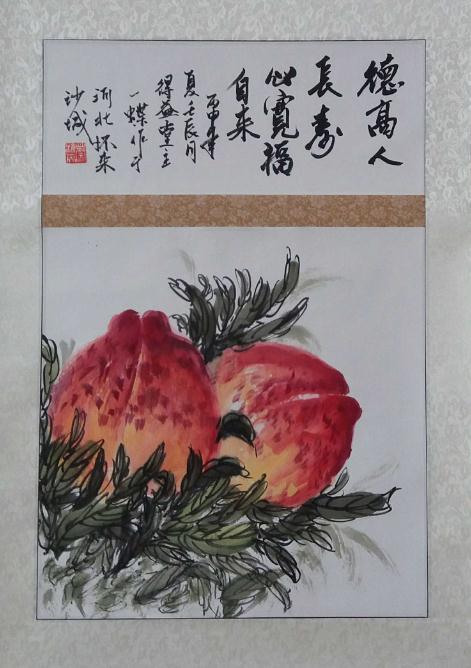 德高人
長壽
心寬福
自来
丙申年
夏壬辰月
得益堂主
一蝶作于
河北怀来
沙城